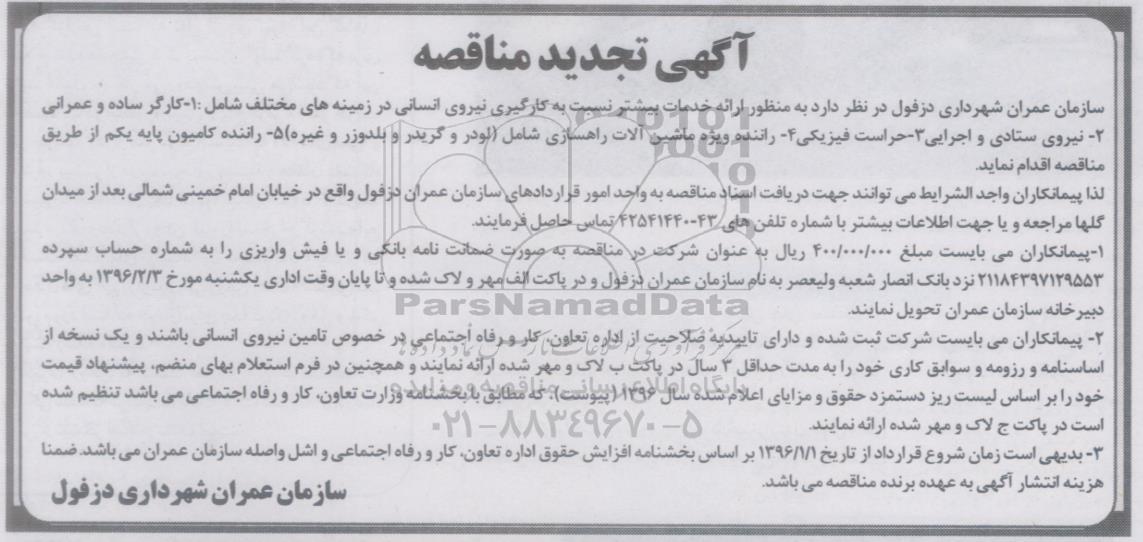 آگهی تجدید مناقصه
سازمان عمران شهرداری دزفول در نظر دارد به منظور ارائه خدمات بیشتر نسبت به کارگیری نیروی انسانی در زمینه های مختلف شامل :۱-کارگر ساده و عمرانی
۲- نیروی ستادی و اجرایی۳-حراست فیزیکی۴- راننده ویژه ماشین آلات راهسازی شامل (لودر و گریدر و بلدوزر و غیره)۵- راننده کامیون پایه یکم از طریق
مناقصه اقدام نماید.
لذا پیمانکاران واجد الشرایط می توانند جهت دریافت اسناد مناقصه به واحد امور قراردادهای سازمان عمران دزفول واقع در خیابان امام خمینی شمالی بعد از میدان
گلها مراجعه و یا جهت اطلاعات بیشتر با شماره تلفن های ۴۳-۴۲۵۴۱۴۴۰ تماس حاصل فرمایند.
۱-پیمانکاران می بایست مبلغ ۴۰۰/۰۰۰/۰۰۰ ریال به عنوان شرکت در مناقصه به صورت ضمانت نامه بانکی و یا فیش واریزی را به شماره حساب سپرده
۲۱۱۸۴۳۹۷۱۲۹۵۵۳ نزد بانک انصار شعبه ولیعصر به نام سازمان عمران دزفول و در پاکت الف مهر و لاک شده و تا پایان وقت اداری یکشنبه مورخ ۱۳۹۶/۲/۳ به واحد
دبیرخانه سازمان عمران تحویل نمایند.
ParsNamadData
۲- پیمانکاران می بایست شرکت ثبت شده و دارای تاییدیه صلاحیت از اداره تعاون، کار و رفاه اجتماعی در خصوص تامین نیروی انسانی باشند و یک نسخه از
اساسنامه و رزومه و سوابق کاری خود را به مدت حداقل ۳ سال در پاکت ب لاک و مهر شده ارائه نمایند و همچنین در فرم استعلام بهای منضم، پیشنهاد قیمت
پایگاه اطلاع رسانی مناقصه و مزایده
خود را بر اساس لیست ریز دستمزد حقوق و مزایای اعلام شده سال ۱۳۹۶ (پیوست)؛ که مطابق با بخشنامه وزارت تعاون، کار و رفاه اجتماعی می باشد تنظیم شده
است در پاکت ج لاک و مهر شده ارائه نمایند.
۰۲۱-۸۸۳۴۹۶۷۰-۵
۳- بدیهی است زمان شروع قرارداد از تاریخ ۱۳۹۶/۱/۱ بر اساس بخشنامه افزایش حقوق اداره تعاون، کار و رفاه اجتماعی و اشل واصله سازمان عمران می باشد. ضمنا
هزینه انتشار آگهی به عهده برنده مناقصه می باشد.
سازمان عمران شهرداری دزفول